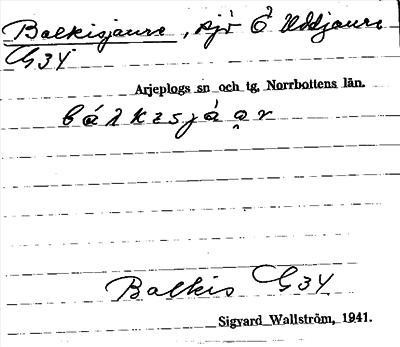 Balkisjaure, sjö Ö Uddjaure
G34
Arjeplogs sn och tg, Norrbottens län.
bálkesjáo̯r
Balkis G34
Sigvard Wallström, 1941.